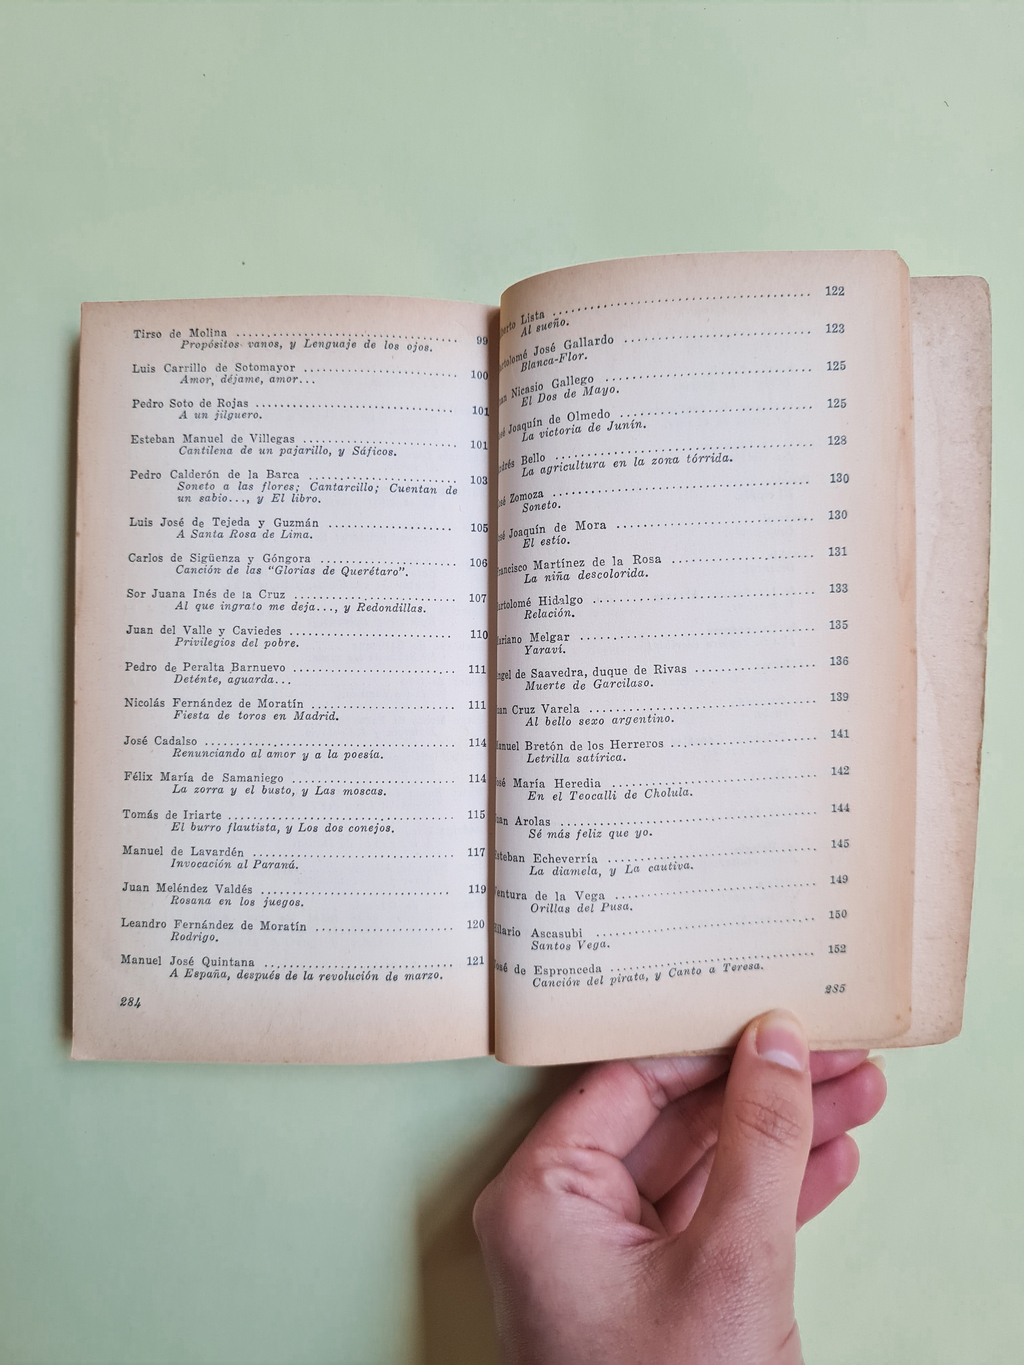 Tirso de Molina ........................................ 99
Propósitos vanos, y Lenguaje de los ojos.
Luis Carrillo de Sotomayor ........................ 100
Amor, déjame, amor...
Pedro Soto de Rojas ................................ 101
A un jilguero.
Esteban Manuel de Villegas ........................ 101
Cantilena de un pajarillo, y Sáficos.
Pedro Calderón de la Barca ........................ 103
Soneto a las flores; Cantarcillo; Cuentan de
un sabio..., y El libro.
Luis José de Tejeda y Guzmán ................... 105
A Santa Rosa de Lima.
Carlos de Sigüenza y Góngora .................... 106
Canción de las "Glorias de Querétaro".
Sor Juana Inés de la Cruz ........................ 107
Al que ingrato me deja..., y Redondillas.
Juan del Valle y Caviedes ........................ 110
Privilegios del pobre.
Pedro de Peralta Barnuevo ........................ 111
Deténte, aguarda...
Nicolás Fernández de Moratín ..................... 111
Fiesta de toros en Madrid.
José Cadalso ........................................ 114
Renunciando al amor y a la poesía.
Félix María de Samaniego ........................ 114
La zorra y el busto, y Las moscas.
Tomás de Iriarte .................................... 115
El burro flautista, y Los dos conejos.
Manuel de Lavardén ................................ 117
Invocación al Paraná.
Juan Meléndez Valdés ............................. 119
Rosana en los juegos.
Leandro Fernández de Moratín .................... 120
Rodrigo.
Manuel José Quintana ............................. 121
A España, después de la revolución de marzo.
284
Lista ........................................ 122
Al sueño.
José Gallardo ............................. 123
Blanca-Flor.
Nicasio Gallego ............................. 125
El Dos de Mayo.
Joaquín de Olmedo ......................... 125
La victoria de Junín.
Bello ........................................ 128
La agricultura en la zona tórrida.
Zomoza ..................................... 130
Soneto.
Joaquín de Mora ............................. 130
El estío.
Martínez de la Rosa ........................ 131
La niña descolorida.
Hidalgo ..................................... 133
Relación.
Melgar ...................................... 135
Yaraví.
de Saavedra, duque de Rivas ................ 136
Muerte de Garcilaso.
Cruz Varela ................................ 139
Al bello sexo argentino.
Bretón de los Herreros ..................... 141
Letrilla satírica.
María Heredia ............................... 142
En el Teocalli de Cholula.
Arolas ...................................... 144
Sé más feliz que yo.
Esteban Echeverría ................................ 145
La diamela, y La cautiva.
Ventura de la Vega ................................ 149
Orillas del Pusa.
Hilario Ascasubi .................................. 150
Santos Vega.
José de Espronceda ................................ 152
Canción del pirata, y Canto a Teresa.
285